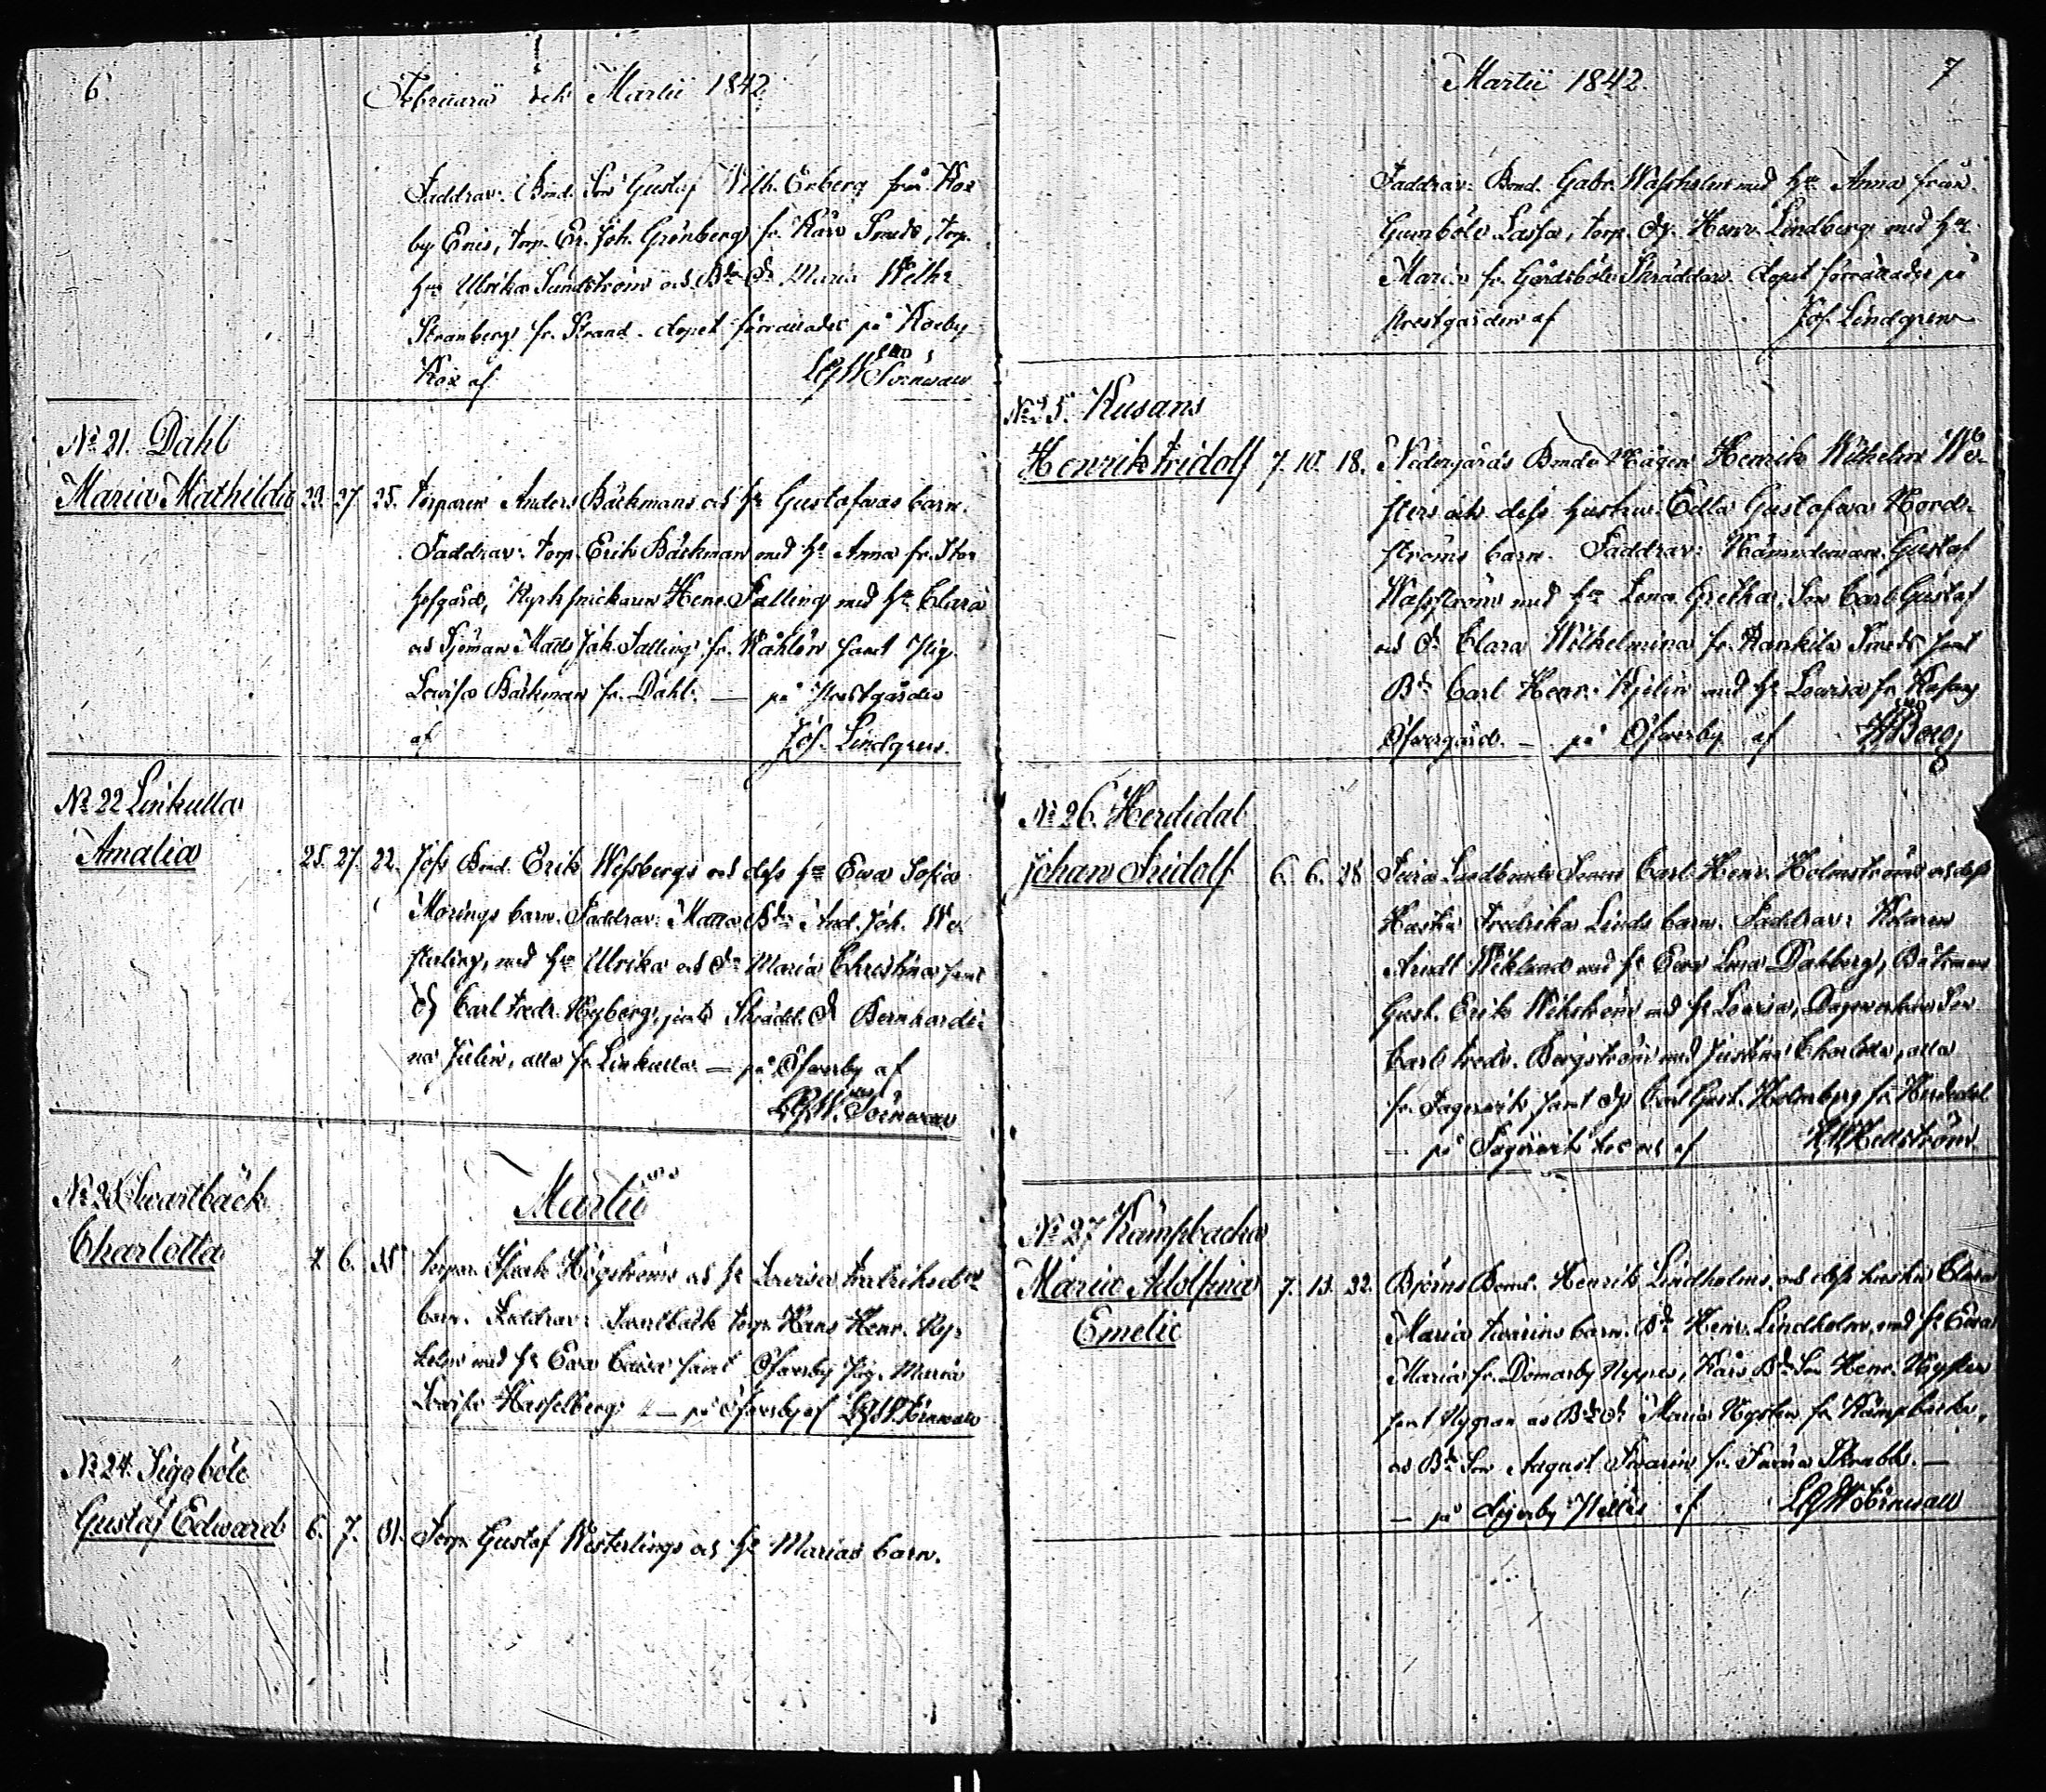 6.
Februarii och Martii 1842.
Faddrar: Bond. Son Gustaf Wilh. Enberg från Kox
by Enis, torp. Er. Joh. Grönberg fr. Smeds, torp.
hu Ulrika Sundström och Bde Dr Maria Wilh:
Stranberg fr. Strand. dopet förrättades på Koxby
Kox af LGW Törnwall
No 21. Dahl
Maria Mathilda 23. 27. 25. torparen Anders Bäckmans och hu Gustafvas barn.
Faddrar: torp. Erik Bäckman med hu Anna fr. Stor
hofgård, Henr. Salling med hu Clara
och Sjöman Matts Jak. Salling fr. samt Pig.
Lovisa Bäckman fr. Dahl. — på Prestgården
af Jos. Lindgren.
No 22 Linkulla
Amalia 25. 27. 22. Joss Bond. Erik Wessbergs och dess hu Ewa Sofia
Morings barn. Faddrar: And. Joh. We-
sterling, med hu Ulrika och Dr Maria Christina samt
Dg Carl Fredr. Nyberg, jemte Skrädd. D. Bernhardi-
na Julin, alla fr. Linkulla — på Ofverby af
LGW. Törnwall
Martii
No 23 Swartbäck
Charlotta 4. 6. 35 torpar. Isaak Högströms och hu Lovisa Fredriksdrs
barn. Faddrar: Swartbäck torp. Hans Henr.
med hu Ewa Caisa samt Ofverby Pig. Maria
Lovisa Hasselberg — på Ofverby af LGW. Törnwall
No 24. Sigaböle
Gustaf Edward 6. 7. 31. Torp. Gustaf Westerlings och hu Marias barn.
Martii 1842.
7
Faddrar: Bond. Gabr. Wassholm med hu Anna från
Gumböle Lassa, torp. Dg. Henr. Lindberg med hu
Maria fr. Gårdsböle Skräddars. dopet förrättades på
Prestgården af Jos. Lindgren
No 25. Kusans
Henrik Fridolf 7. 10. 18. Nedergårds Bonde Mågen Henrik Wilhelm We-
sters och dess hustru Edla Gustafwa Nord-
ströms barn. Faddrar: Nämndeman Gustaf
Wasström med hu Lena Gretha, Son Carl Gustaf
och Dr Clara Wilhelmina fr. Rankila Smeds samt
Bd Carl Henr. Kjelin med hu Lovisa fr. Kusans
Ofvergård. — på Ofverby af Borg
No 26. Herdidal
Johan Fridolf 6. 6. 28 Carl Henr. Holmströms och dess
Hustru Fredrika Linds barn. Faddrar: Kolaren
Arndt Wiklund med hu Ewa Lena Dahlberg, Båtsman
Gust. Erik Wikström med hu Lovisa, Dagsverkare Son
Carl Fredr. Bergström med Justina Charlotta, alla
fr. Fagervik samt Dg Carl Gust. Holmberg fr. Herdidal
— på Fagervik af Hellström
No 27 Kämpbacka
Maria Adolfina 7. 13. 32. Björns Bond. Henrik Lindholms och dess hustru Clara
Emelie
Maria Swarins barn. Bd Henr. Lindholm med hu Ewa
Maria fr. Domarby Nygres, Bd Son Henr. Nysten
samt Pygran och Bde Dr Maria Nysten fr. Kämpbacka,
och Bd Son August Swarin fr. Skrabbs. —
— på af LGW Törnwall